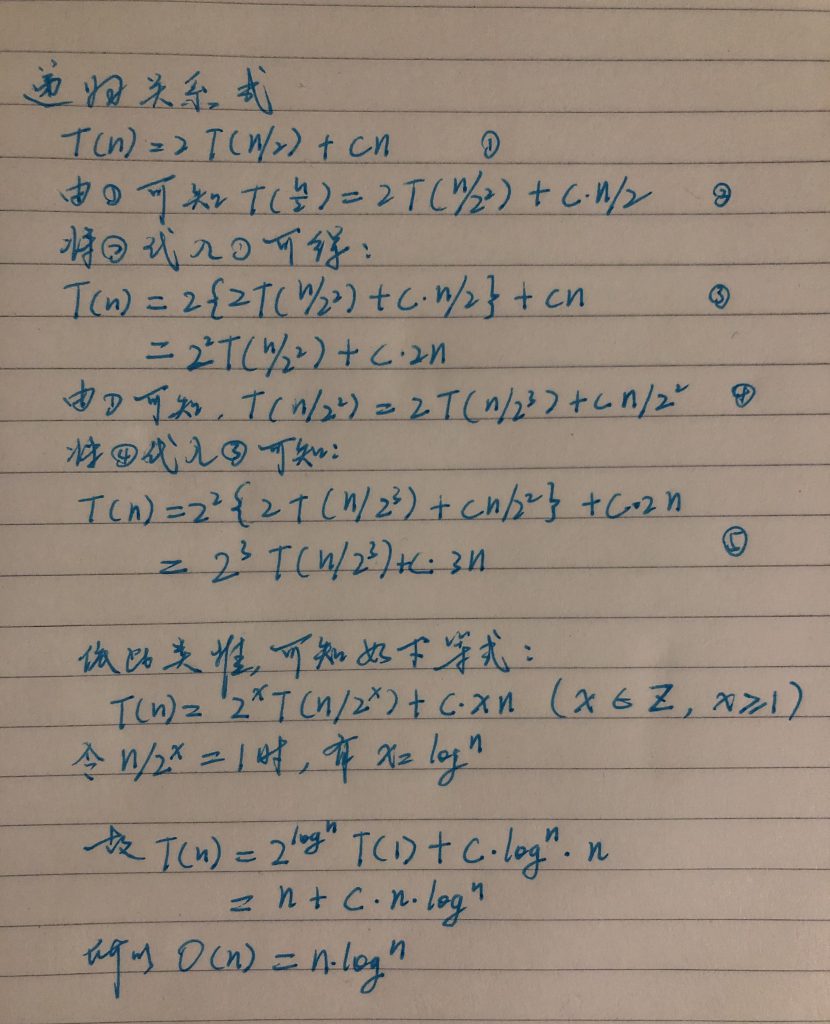 递归关系式
T(n) = 2 T(n/2) + cn ①
由① 可知 T(n/2) = 2 T(n/2²) + C·n/2 ②
将②代入①可得:
T(n) = 2{2T(n/2²) + C·n/2} + cn ③
= 2²T(n/2²) + C·2n
由①可知, T(n/2²) = 2T(n/2³) + cn/2² ④
将④代入③可知:
T(n) = 2²{2T(n/2³) + cn/2²} + C·2n
= 2³ T(n/2³) + C·3n ⑤
依此类推,可知如下等式:
T(n) = 2ˣT(n/2ˣ) + C·xn (x∈Z, x≥1)
令 n/2ˣ = 1时, 有 x = logⁿ
故 T(n) = 2^logⁿ T(1) + C·logⁿ·n
= n + C·n·logⁿ
所以 O(n) = n·logⁿ